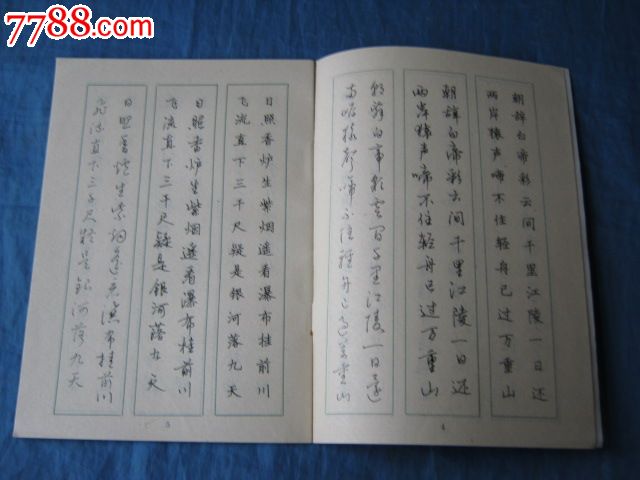 7788.com
朝辞白帝彩云间千里江陵一日还
两岸猿声啼不住轻舟已过万重山
朝辞白帝彩云间千里江陵一日还
两岸猿声啼不住轻舟已过万重山
朝辞白帝彩云间千里江陵一日还
两岸猿声啼不住轻舟已过万重山
4
日照香炉生紫烟遥看瀑布挂前川
飞流直下三千尺疑是银河落九天
日照香炉生紫烟遥看瀑布挂前川
飞流直下三千尺疑是银河落九天
日照香炉生紫烟遥看瀑布挂前川
飞流直下三千尺疑是银河落九天
5